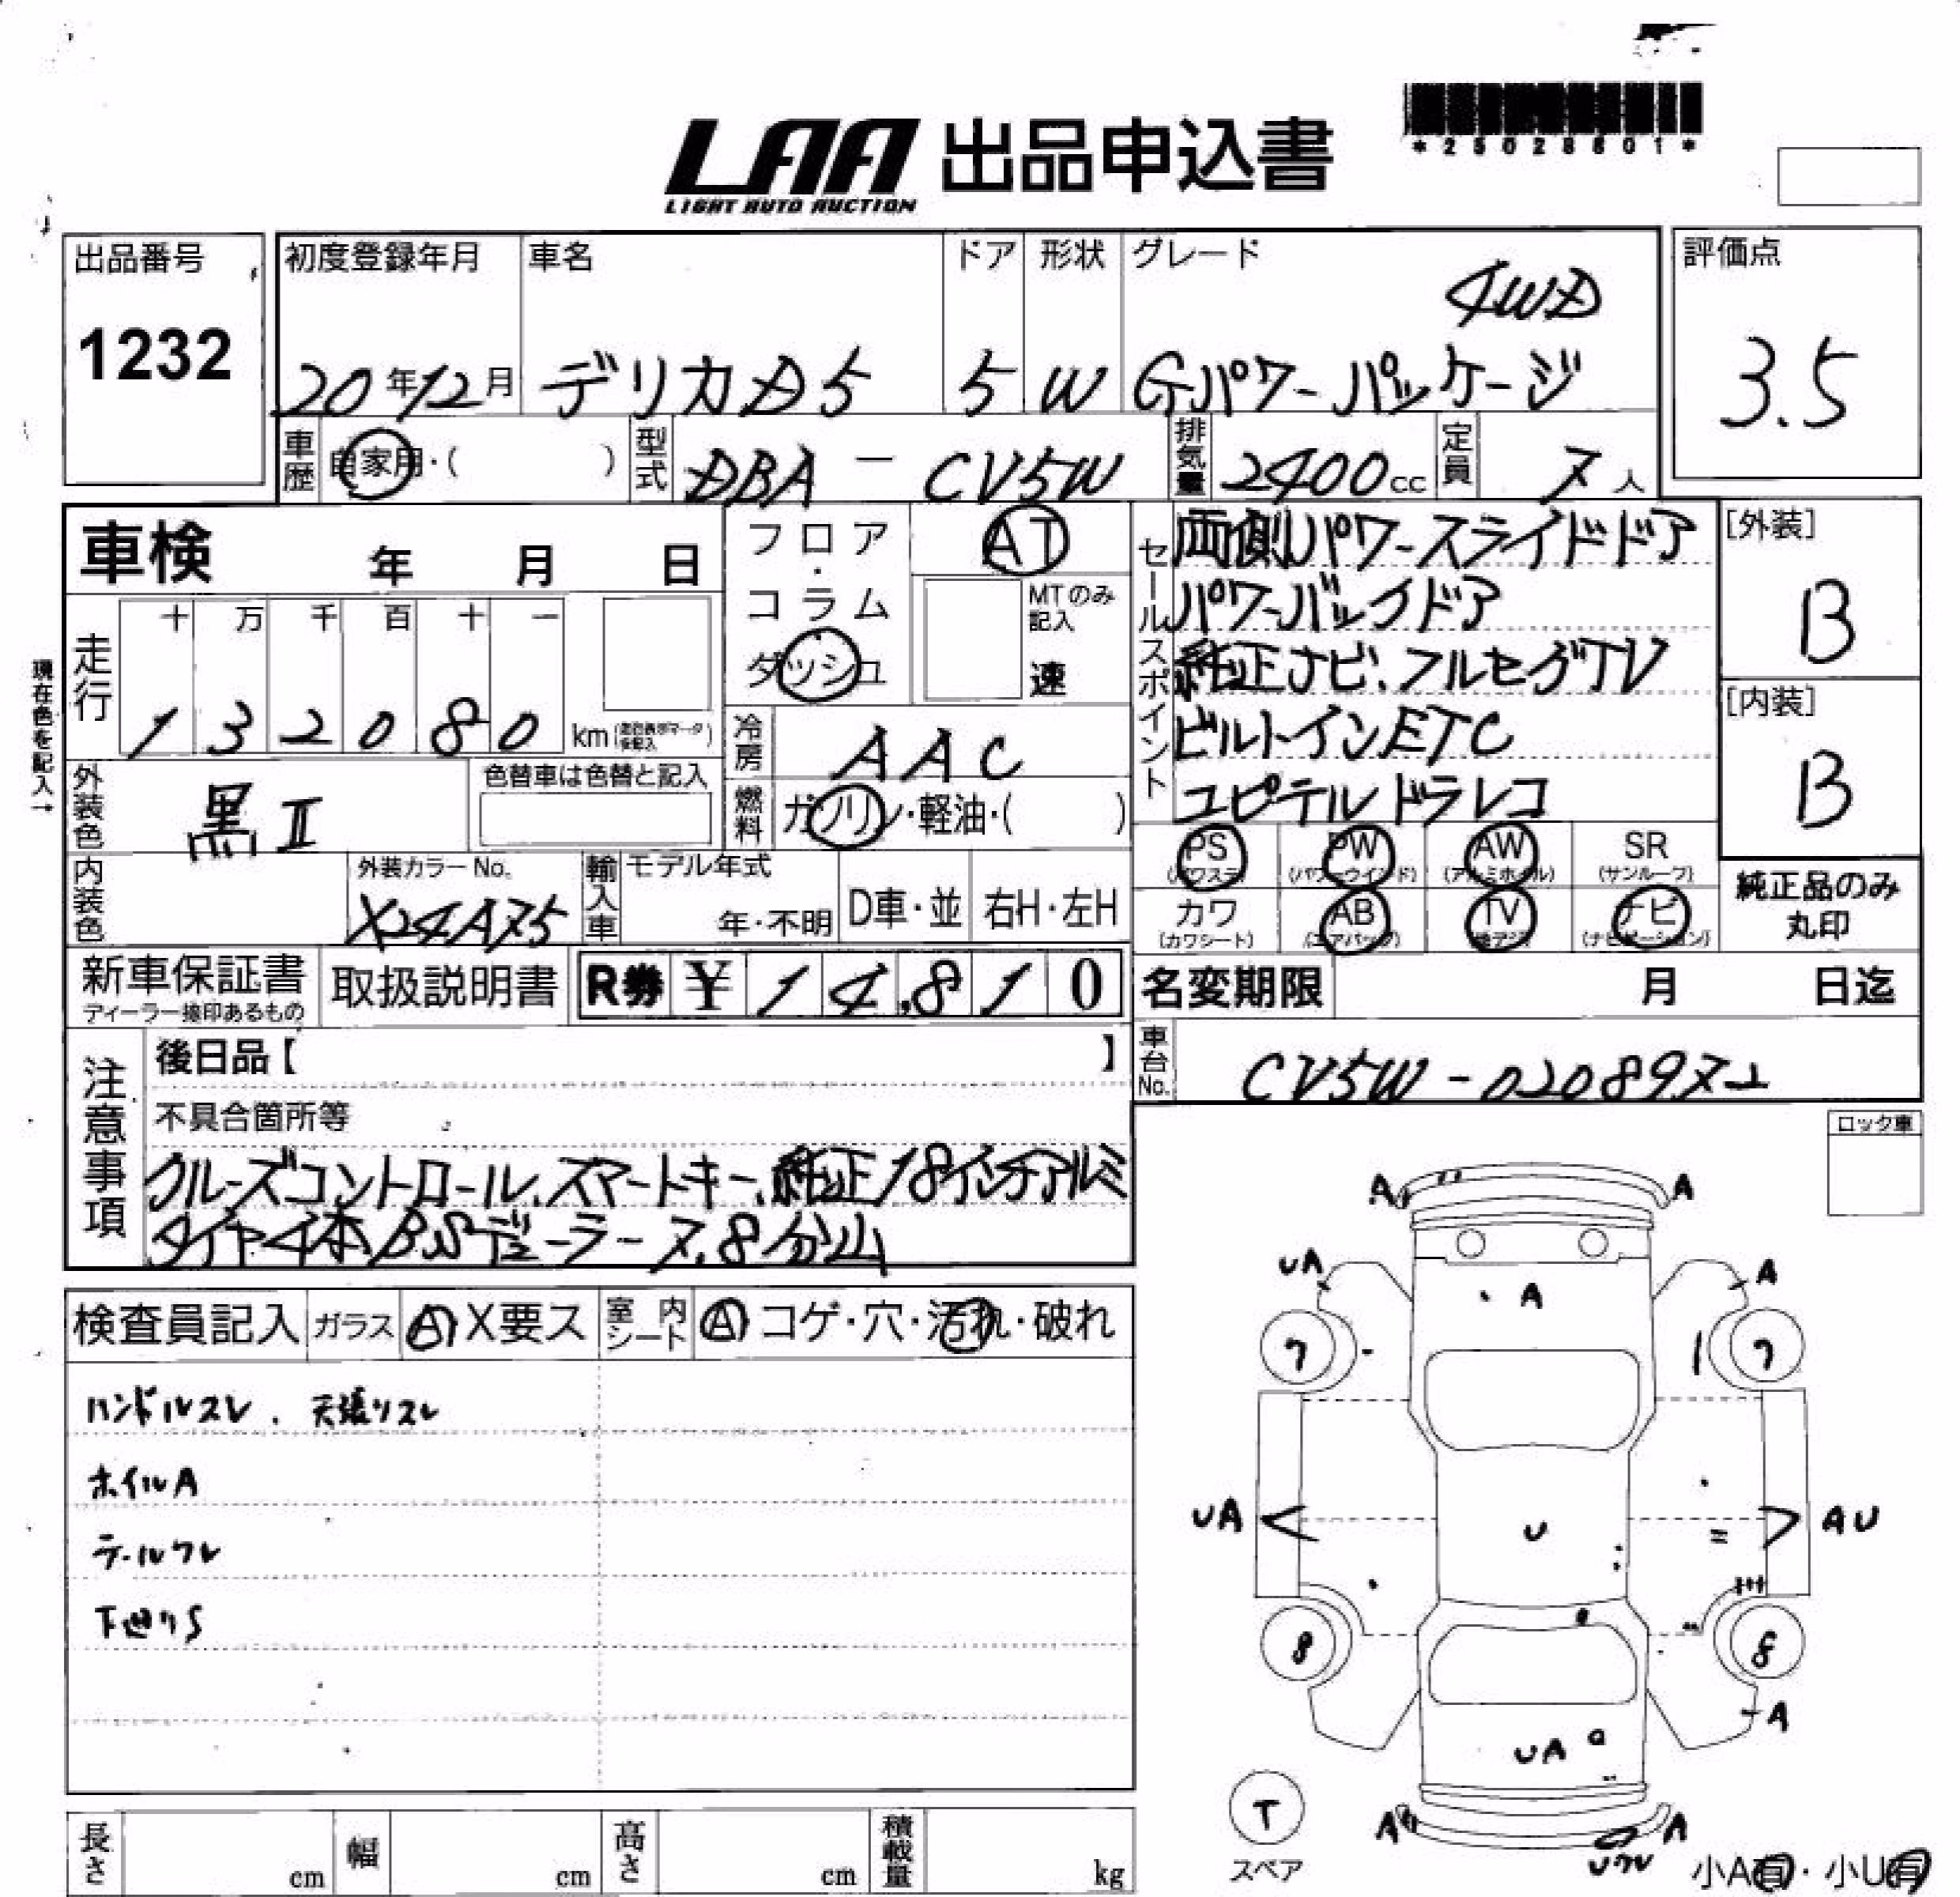 LAA 出品申込書
LIGHT AUTO AUCTION
出品番号
1232
初度登録年月
20年12月
車名
デリカD5
ドア
5
形状
W
グレード
4WD
Gパワーパッケージ
評価点
3.5
車歴 自家用・( )
型式 DBA - CV5W
排気量 2400cc
定員 7人
車検 年 月 日
フロア・コラム
ダッシュ
AT
MTのみ記入
速
セールスポイント
両側パワースライドドア
パワーバックドア
純正ナビ、フルセグTV
ビルトインETC
ユピテルドラレコ
[外装]
B
[内装]
B
走行
十 万 千 百 十 一
1 3 2 0 8 0 km
現在色を記入→
冷房 AAC
燃料 ガソリン・軽油・( )
外装色 黒II
色替車は色替と記入
内装色
外装カラーNo.
X24A75
輸入車
モデル年式
年・不明
D車・並
右H・左H
PS
(パワステ)
PW
(パワーウインド)
AW
(アルミホイル)
SR
(サンルーフ)
カワ
(カワシート)
AB
(エアバック)
TV
(地デジ)
ナビ
(ナビゲーション)
純正品のみ
丸印
新車保証書
ディーラー捺印あるもの
取扱説明書
R券 ¥ 14,810
名変期限 月 日迄
車台No. CV5W-0208972
注意事項
後日品【 】
不具合箇所等
クルーズコントロール、スマートキー、純正18インチアルミ
タイヤ4本BSデューラー7.8分山
ロック車
検査員記入
ガラス A X要ス
室内シート A コゲ・穴・汚れ・破れ
ハンドルスレ、天張リスレ
ホイルA
テールワレ
下廻りS
A A
UA A
A
7 7
UA U AU
8 8
A
UA
T
スペア
A A
Uワレ
小A有・小U有
長さ cm
幅 cm
高さ cm
積載量 kg